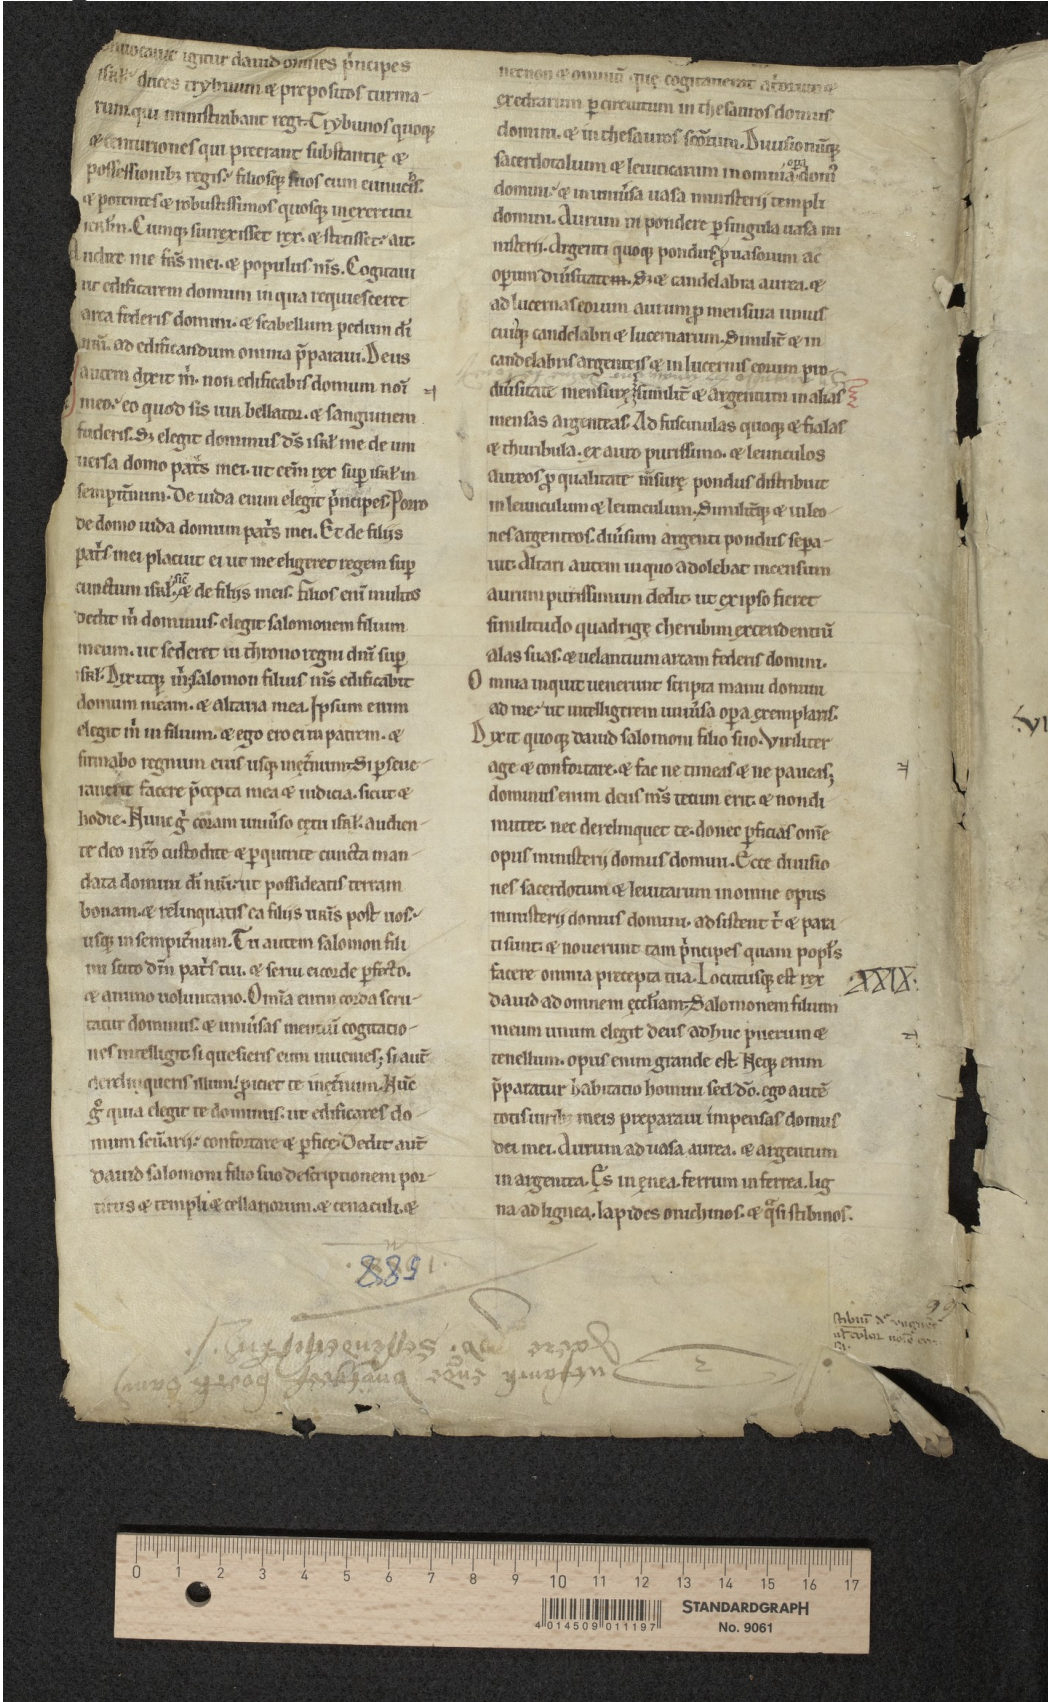 Conuocauit igitur dauid omnes p̄ncipes
isrl̄. duces trybuum & prepositos turma-
rum. qui ministrabant regi. Trybunos quoq;
& centuriones qui preerant substantię &
possessionib; regis. filiosq; suos cum eunuchis.
& potentes & robustissimos quosq; in exercitu
ierl̄m. Cumq; surrexisset rex. & stetisset. ait.
Audite me fr̄s mei. & populus m̄s. Cogitaui
ut edificarem domum in qua requiesceret
arca federis domini. & scabellum pedum dī
nr̄i. ad edificandum omnia p̄paraui. Deus
autem dixit m̄. non edificabis domum noī
meo. eo quod sis uir bellator. & sanguinem
fuderis. Sȝ elegit dominus dn̄s isrl̄ me de uni
uersa domo patr̄s mei. ut essem rex sup̄ isrl̄ in
sempit̄num. De iuda enim elegit p̄ncipes. Porro
de domo iuda domum patr̄s mei. Et de filijs
patr̄s mei placuit ei ut me eligeret regem sup̄
cunctum isrl̄. sic̄ & de filijs meis. filios enī multos
dedit m̄ dominus. elegit salomonem filium
meum. ut sederet in throno regni dn̄i sup̄
isrl̄. Dixitq; m̄. salomon filius m̄s edificabit
domum meam. & altaria mea. Ipsum enim
elegit m̄ in filium. & ego ero ei in patrem. &
firmabo regnum eius usq; in ęt̄num. Si p̄seue-
rauerit facere p̄cepta mea & iudicia. sicut &
hodie. Nunc ḡ coram uniu̅so cętu isrl̄. audien-
te deo nr̄o custodite & p̄quirite cuncta man-
data domini dī nr̄i. ut possideatis terram
bonam. & relinquatis ea filijs ur̄is post uos.
usq; in sempit̄num. Tu autem salomon fili
mi scito dm̄ patr̄s tui. & serui ei corde p̄fecto.
& animo uoluntario. Omīa enim corda scru-
tatur dominus. & uniu̅sas mentiū cogitatio-
nes intelligit. si quesieris eum inuenies; si aut̄
derelinqueris illum. p̄iciet te in ęt̄num. Nūc
ḡ quia elegit te dominus. ut edificares do-
mum scūarij. confortare & p̄fice. Dedit aut̄
dauid salomoni filio suo descriptionem por-
ticus & templi & cellariorum. & cenaculi. &
necnon & omniū que cogitauerat atriorum &
exedrarum p̄ circuitum in thesauros domus
domini. & in thesauros sc̄orum. Diuisionūq;
sacerdotalium & leuiticarum in omnia opa dom'
domini. & in uniu̅sa uasa ministerij templi
domini. Aurum in pondere p̄ singula uasa mi
nisterij. Argenti quoq; pondus p̄ uasorum ac
operum diu̅sitatem. Sȝ & candelabra aurea. &
ad lucernas eorum aurum p̄ mensura unius
cuiq; candelabri & lucernarum. Similit̄ & in
candelabris argenteis & in lucernis eorum pro-
diu̅sitate mensure similit̄ & argentum in alias
mensas argenteas. Ad fuscinulas quoq; & fialas
& thuribula. ex auro purissimo. & leunculos
aureos p̄ qualitate m̄surę pondus distribuit
in leunculum & leunculum. Similit̄q; & in leo-
nes argenteos. diu̅sum argenti pondus sepa-
uit. Altari autem in quo adolebat incensum
aurum purissimum dedit. ut ex ipso fieret
similitudo quadrigę cherubim extendentiū
alas suas. & uelantium arcam federis domini.
Omnia inquit uenerunt scripta manu domini
ad me. ut intelligerem uniu̅sa opa exemplaris.
Dyxit quoq; dauid salomoni filio suo. Viriliter
age & confortare. & fac ne timeas & ne paueas;
dominus enim deus m̄s tecum erit. & non di
mittet. nec derelinquet te. donec p̄ficias om̄e
opus ministerij domus domini. Ecce diuisio
nes sacerdotum & leuitarum in omne opus
ministerij domus domini. adsistent t̄ & para
ti sunt. & nouerunt tam p̄ncipes quam popl̄s
facere omnia precepta tua. Locutusq; est rex
XXIX.
dauid ad omnem ęccl̄iam. Salomonem filium
meum unum elegit deus adhuc puerum &
tenellum. opus enim grande est. Neq; enim
p̄paratur habitatio homini sed do̅. ego autē
totis uirib; meis preparaui impensas domus
dei mei. Aurum ad uasa aurea. & argentum
in argentea. Ęs in ęnea. ferrum in ferrea. lig
na ad lignea. lapides onichinos. & q̄si stibinos.
588
99
VI
0 1 2 3 4 5 6 7 8 9 10 11 12 13 14 15 16 17
4 014509 011197
STANDARDGRAPH
No. 9061